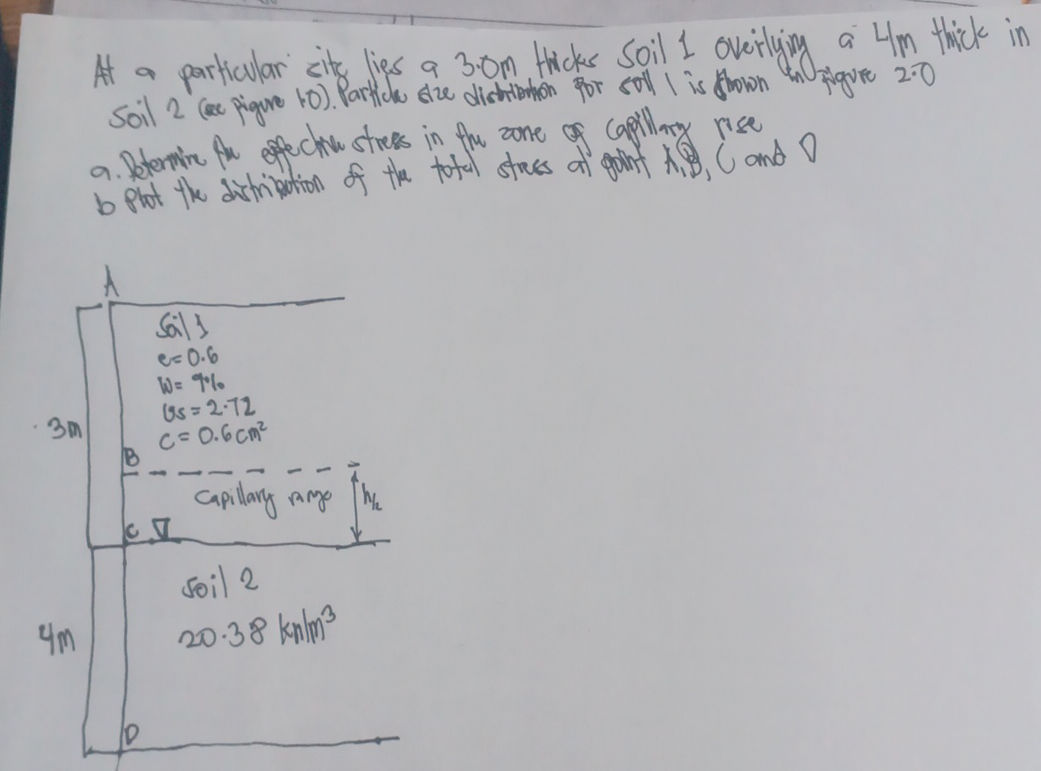 At a particular site lies a 3.0m thicks Soil 1 overlying a 4m thick in
Soil 2 (see figure 1.0). Particle size distribution for soil 1 is shown in figure 2.0
a. Determine the effective stress in the zone of capillary rise
b Plot the distribution of the total stress at point A, B, C and D
A
Soil 1
e = 0.6
W = 9%
Gs = 2.72
3m
C = 0.6 cm²
B
Capillary range
h/2
C
Soil 2
4m
20.38 kn/m³
D